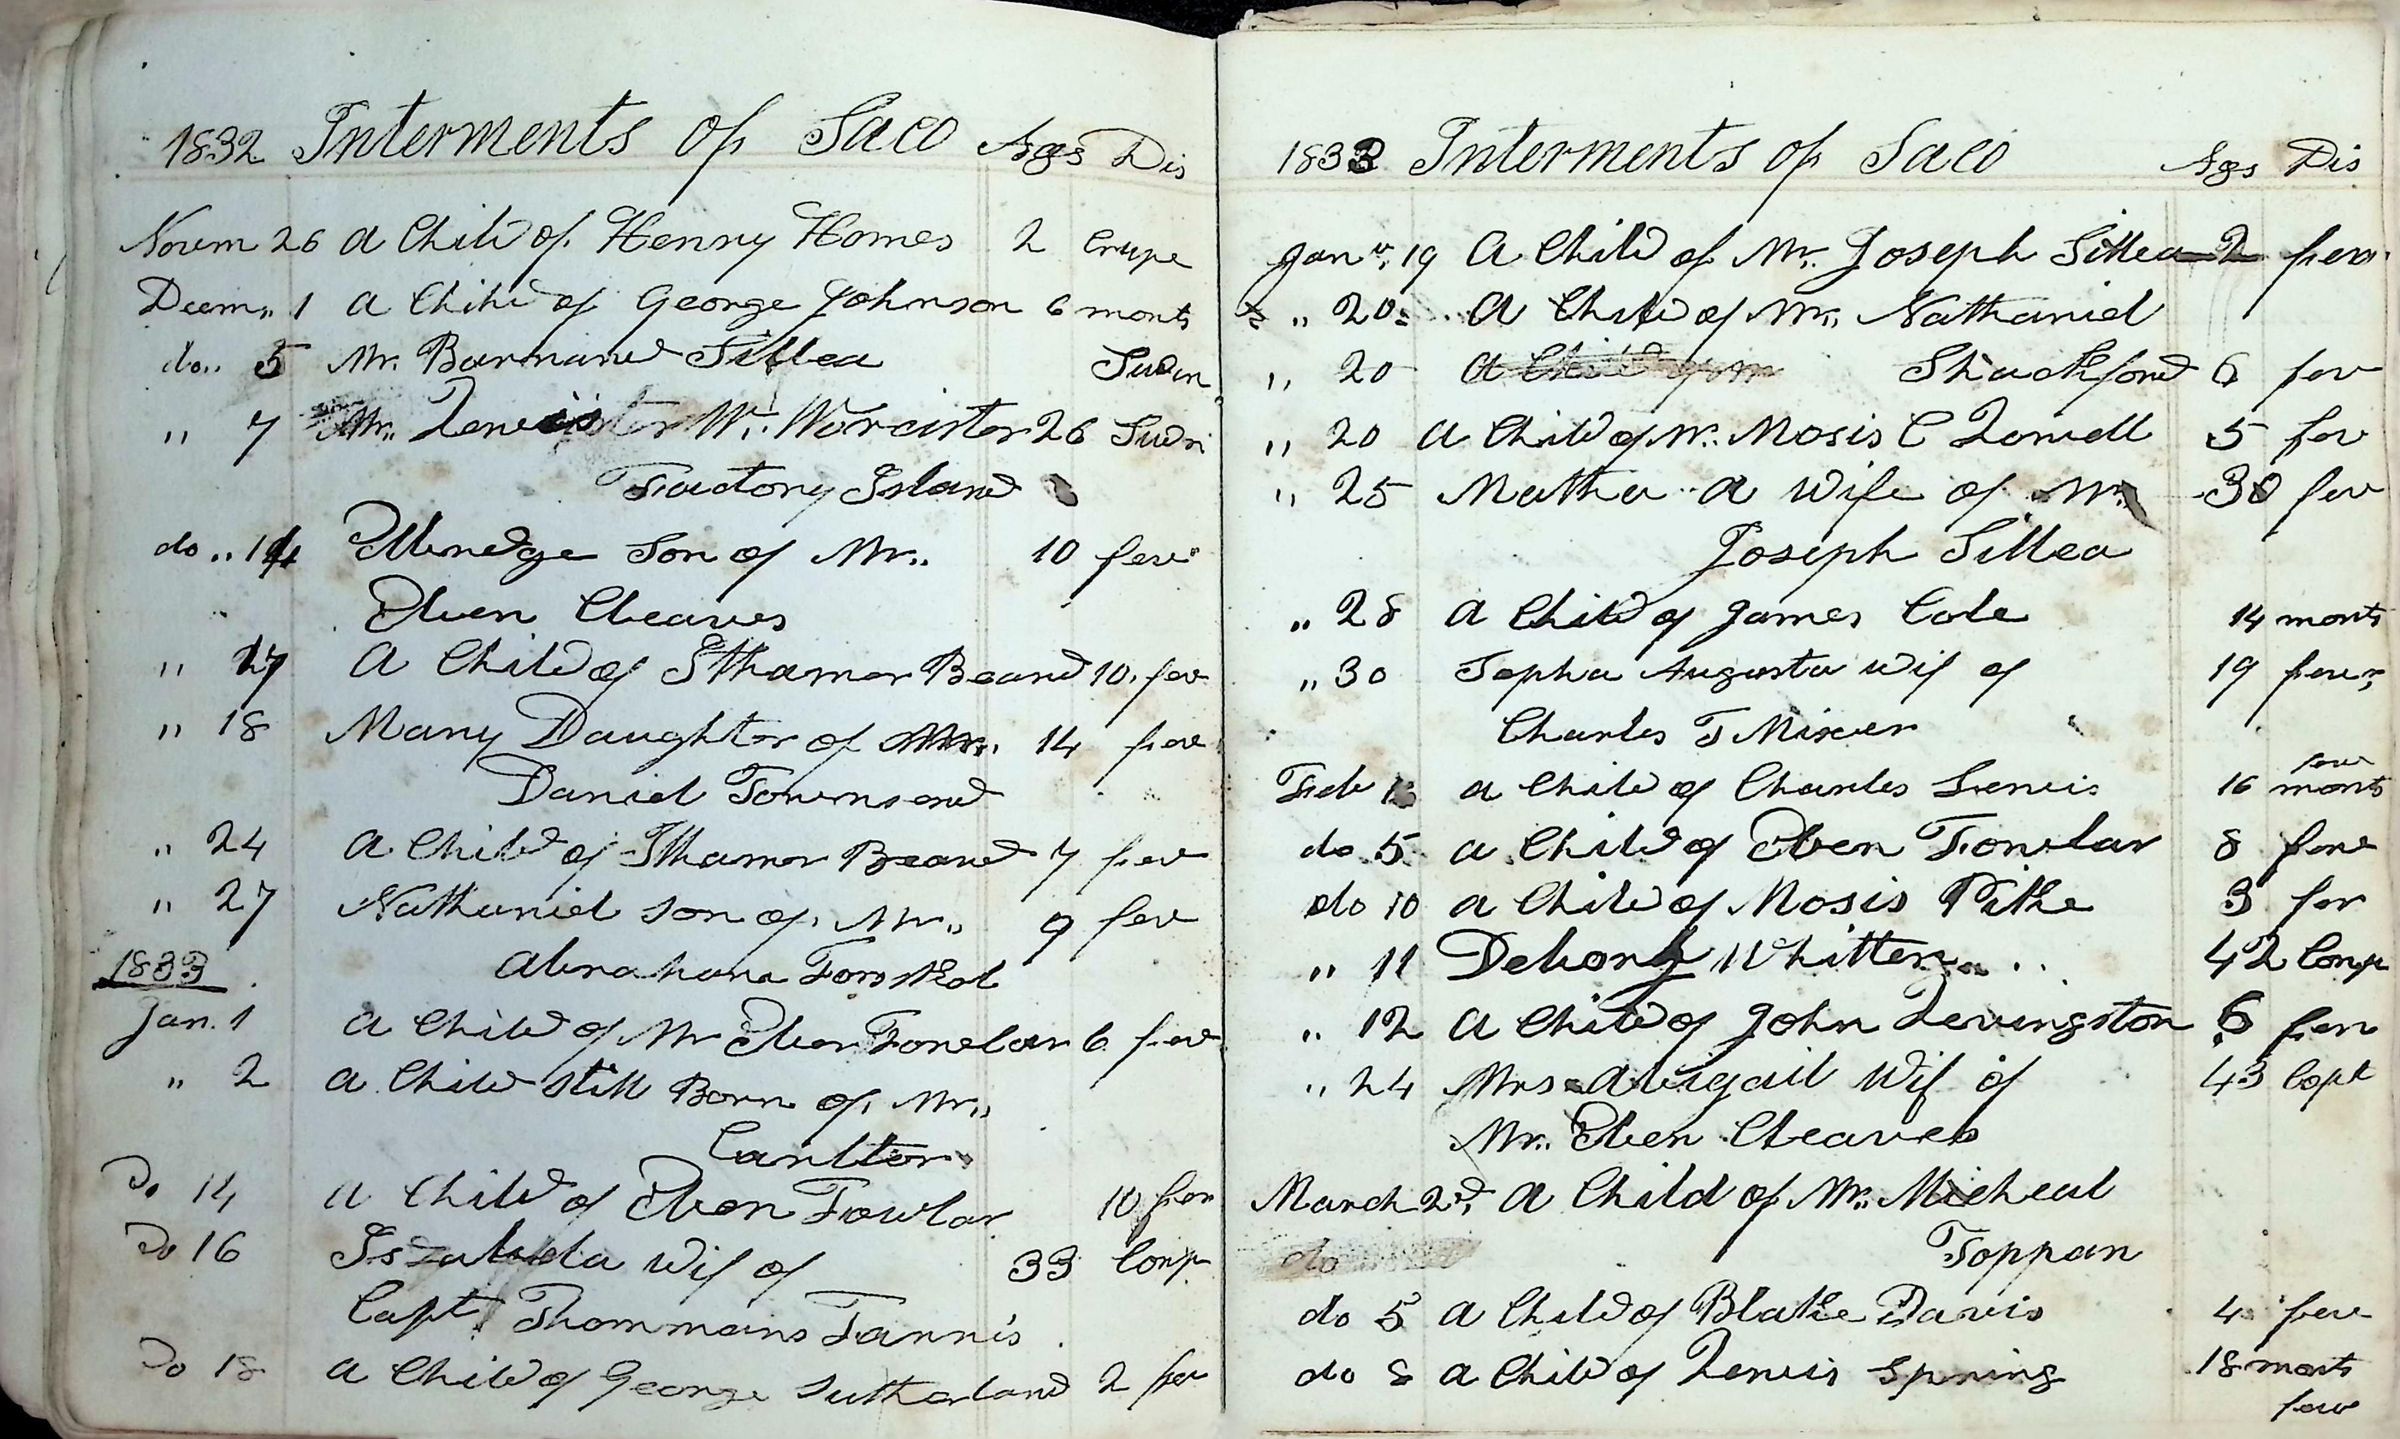 1832 Interments of Saco Ags Dis
Novem 26 a Child of Henry Homes 2 Crupe
Decem,, 1 a Child of George Johnson 6 monts
do.. 5 Mr. Barnard Sillea Suden
,, 7 Mr. W. Worcister 26 Sudn
Factory Island
do ,, 14 Elbredge Son of Mr.. 10 fev
Eben Cleaves
,, 17 a Child of Ithamer Beard 10 fev
,, 18 Mary Daughter of Mr.. 14 fev
Daniel Townsend
,, 24 a Child of Ithamer Beard 7 fev
,, 27 Nathaniel son of Mr.. 9 fev
1833 Abraham Forsskol
Jan. 1 a Child of Mr Eben Fowelar 6 fev
,, 2 a Child still Born of Mr..
Carlton
Do 14 a Child of Eben Fowlar 10 fev
Do 16 Iszabela Wif of 33 Conp
Capt Thommans Tannis
Do 18 a Child of George Sutherland 2 fev
1833 Interments of Saco Ags Dis
Janu. 19 a Child of Mr. Joseph Sillea 2 fev
,, 20 a Child of Mr. Nathaniel
,, 20 a Child Shackford 6 fev
,, 20 a Child of Mr. Mosis C Lowell 5 fev
,, 25 Matha a Wife of Mr. 30 fev
Joseph Sillea
,, 28 a Child of James Cole 14 monts
,, 30 Sopha Augusta Wif of 19 fever
Charles T Mixer
fev
Feb a Child of Charles Lewis 16 monts
do 5 a Child of Eben Fowelar 8 feve
do 10 a Child of Mosis Pike 3 fev
,, 11 Debory Whitten 42 Conp
,, 12 a Child of John Levingston 6 fev
,, 24 Mrs Abigail Wif of 43 Copt
Mr. Eben Cleaves
March 2d, a Child of Mr. Micheal
do Toppan
do 5 a Child of Blake Davis 4 fev
do 8 a Child of Lewis Spring 18 monts
fev